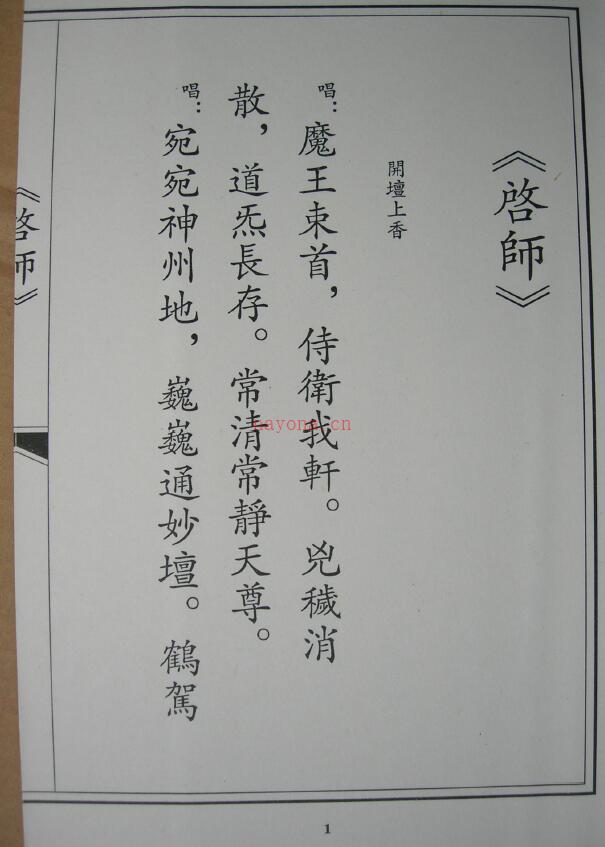 《啓師》
開壇上香
唱：魔王束首，侍衛我軒。兇穢消
散，道炁長存。常清常靜天尊。
唱：宛宛神州地，巍巍通妙壇。鶴駕
《啓師》
1
nayona.cn